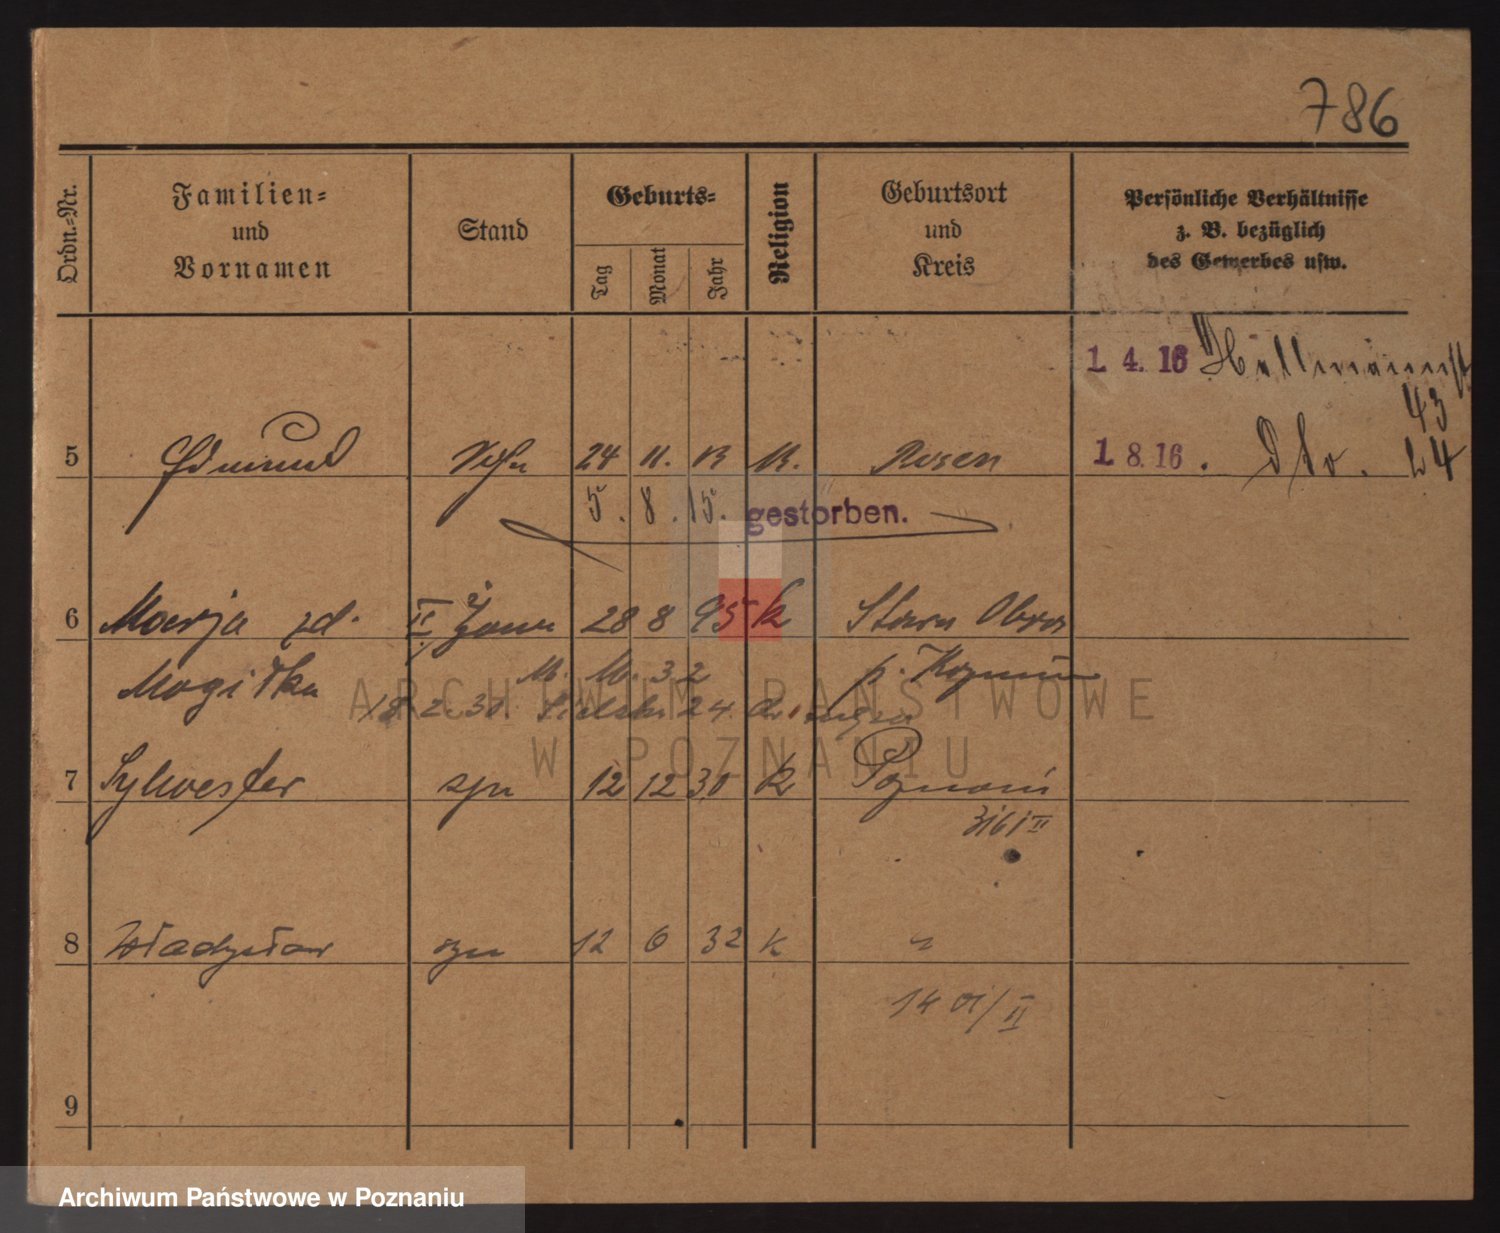 786
Ordn.-Nr.
Familien-
und
Vornamen
Stand
Geburts-
Tag
Monat
Jahr
Religion
Geburtsort
und
Kreis
Persönliche Verhältnisse
z. B. bezüglich
des Gewerbes usw.
1. 4. 16
43
5 Edmund Sohn 24 11. 13 K. Posen 1. 8. 16. dto. 24
5. 8. 15. gestorben.
6 Marja zd. II żona 28 8 95 K Stara Obra
32
7 Sylwester syn 12 12 30 K Poznań
8 Władysław syn 12 6 32 K "
9
ARCHIWUM PAŃSTWOWE
W POZNANIU
Archiwum Państwowe w Poznaniu